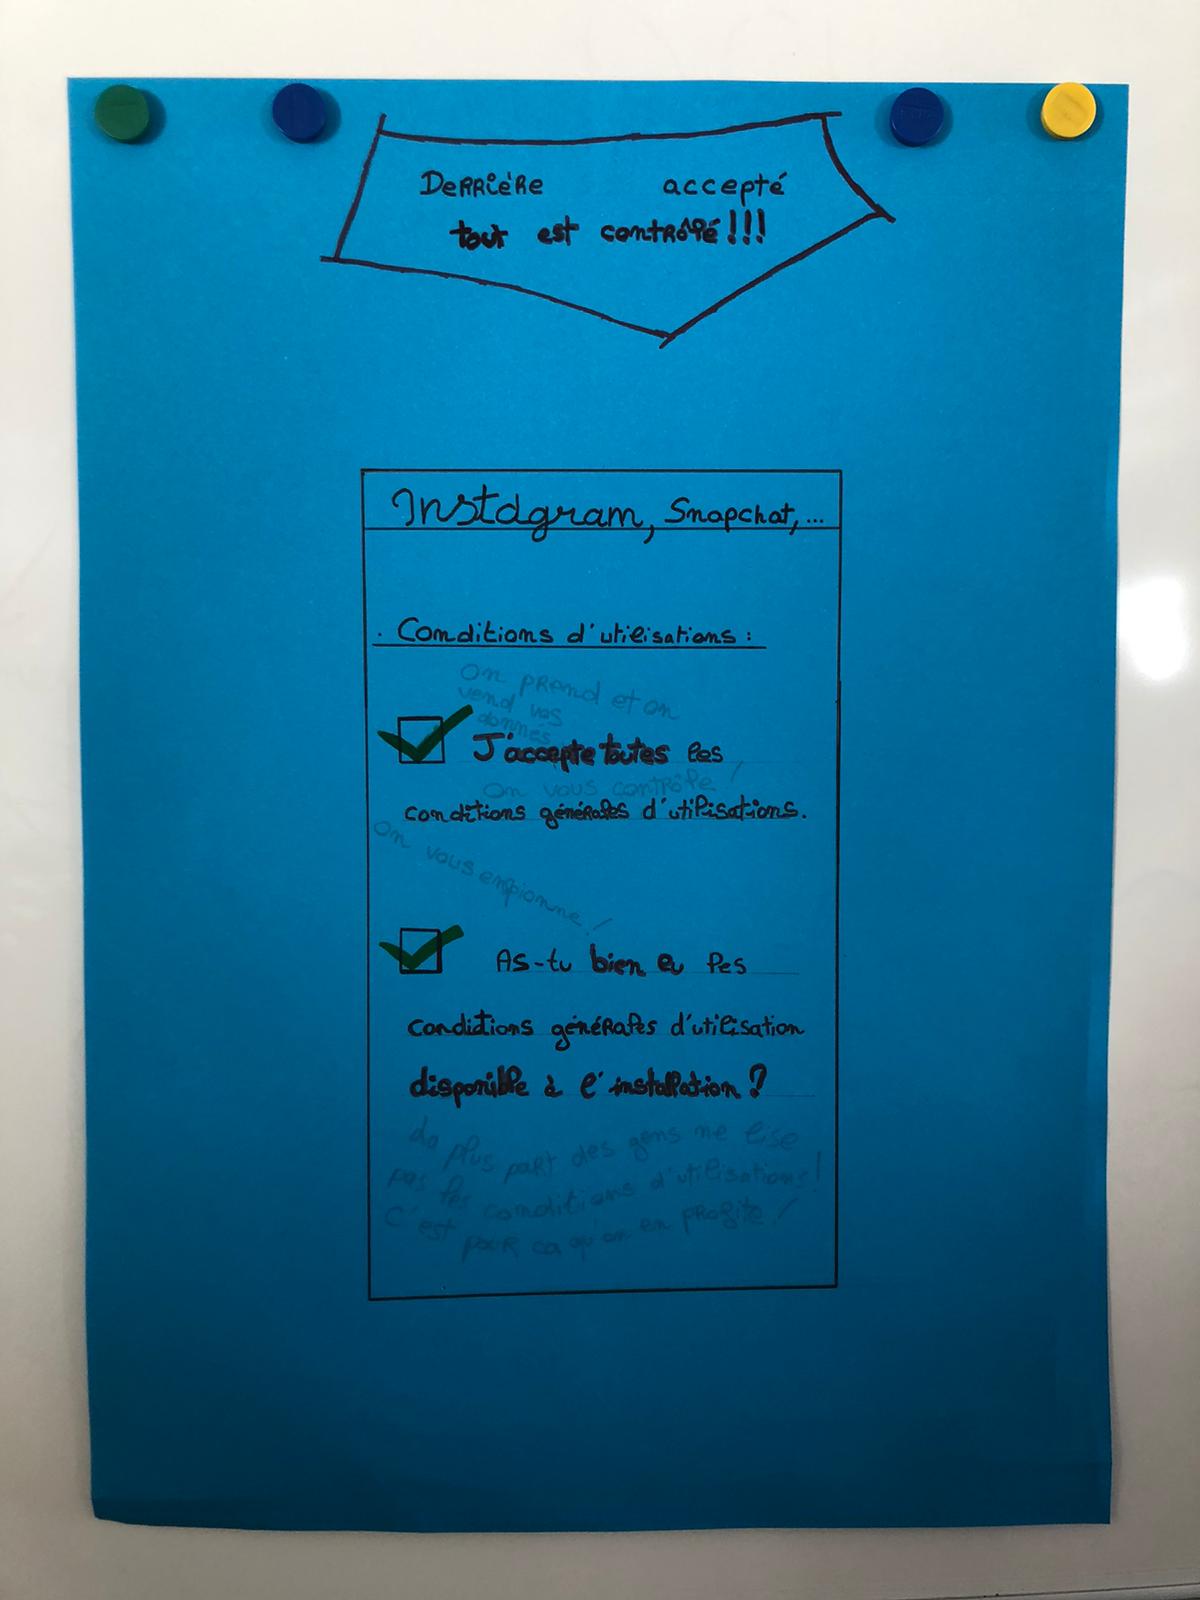 Derrière accepté
tout est contrôlé!!!
Instagram, Snapchat,...
. Conditions d'utilisations :
On prend et on
vend vos
donnés
J'accepte toutes les
On vous contrôle !
conditions générales d'utilisations.
On vous empionne !
As-tu bien eu les
conditions générales d'utilisation
disponible à l'installation ?
La plus part des gens ne lise
pas les conditions d'utilisations !
C'est pour ca qu'on en profite !